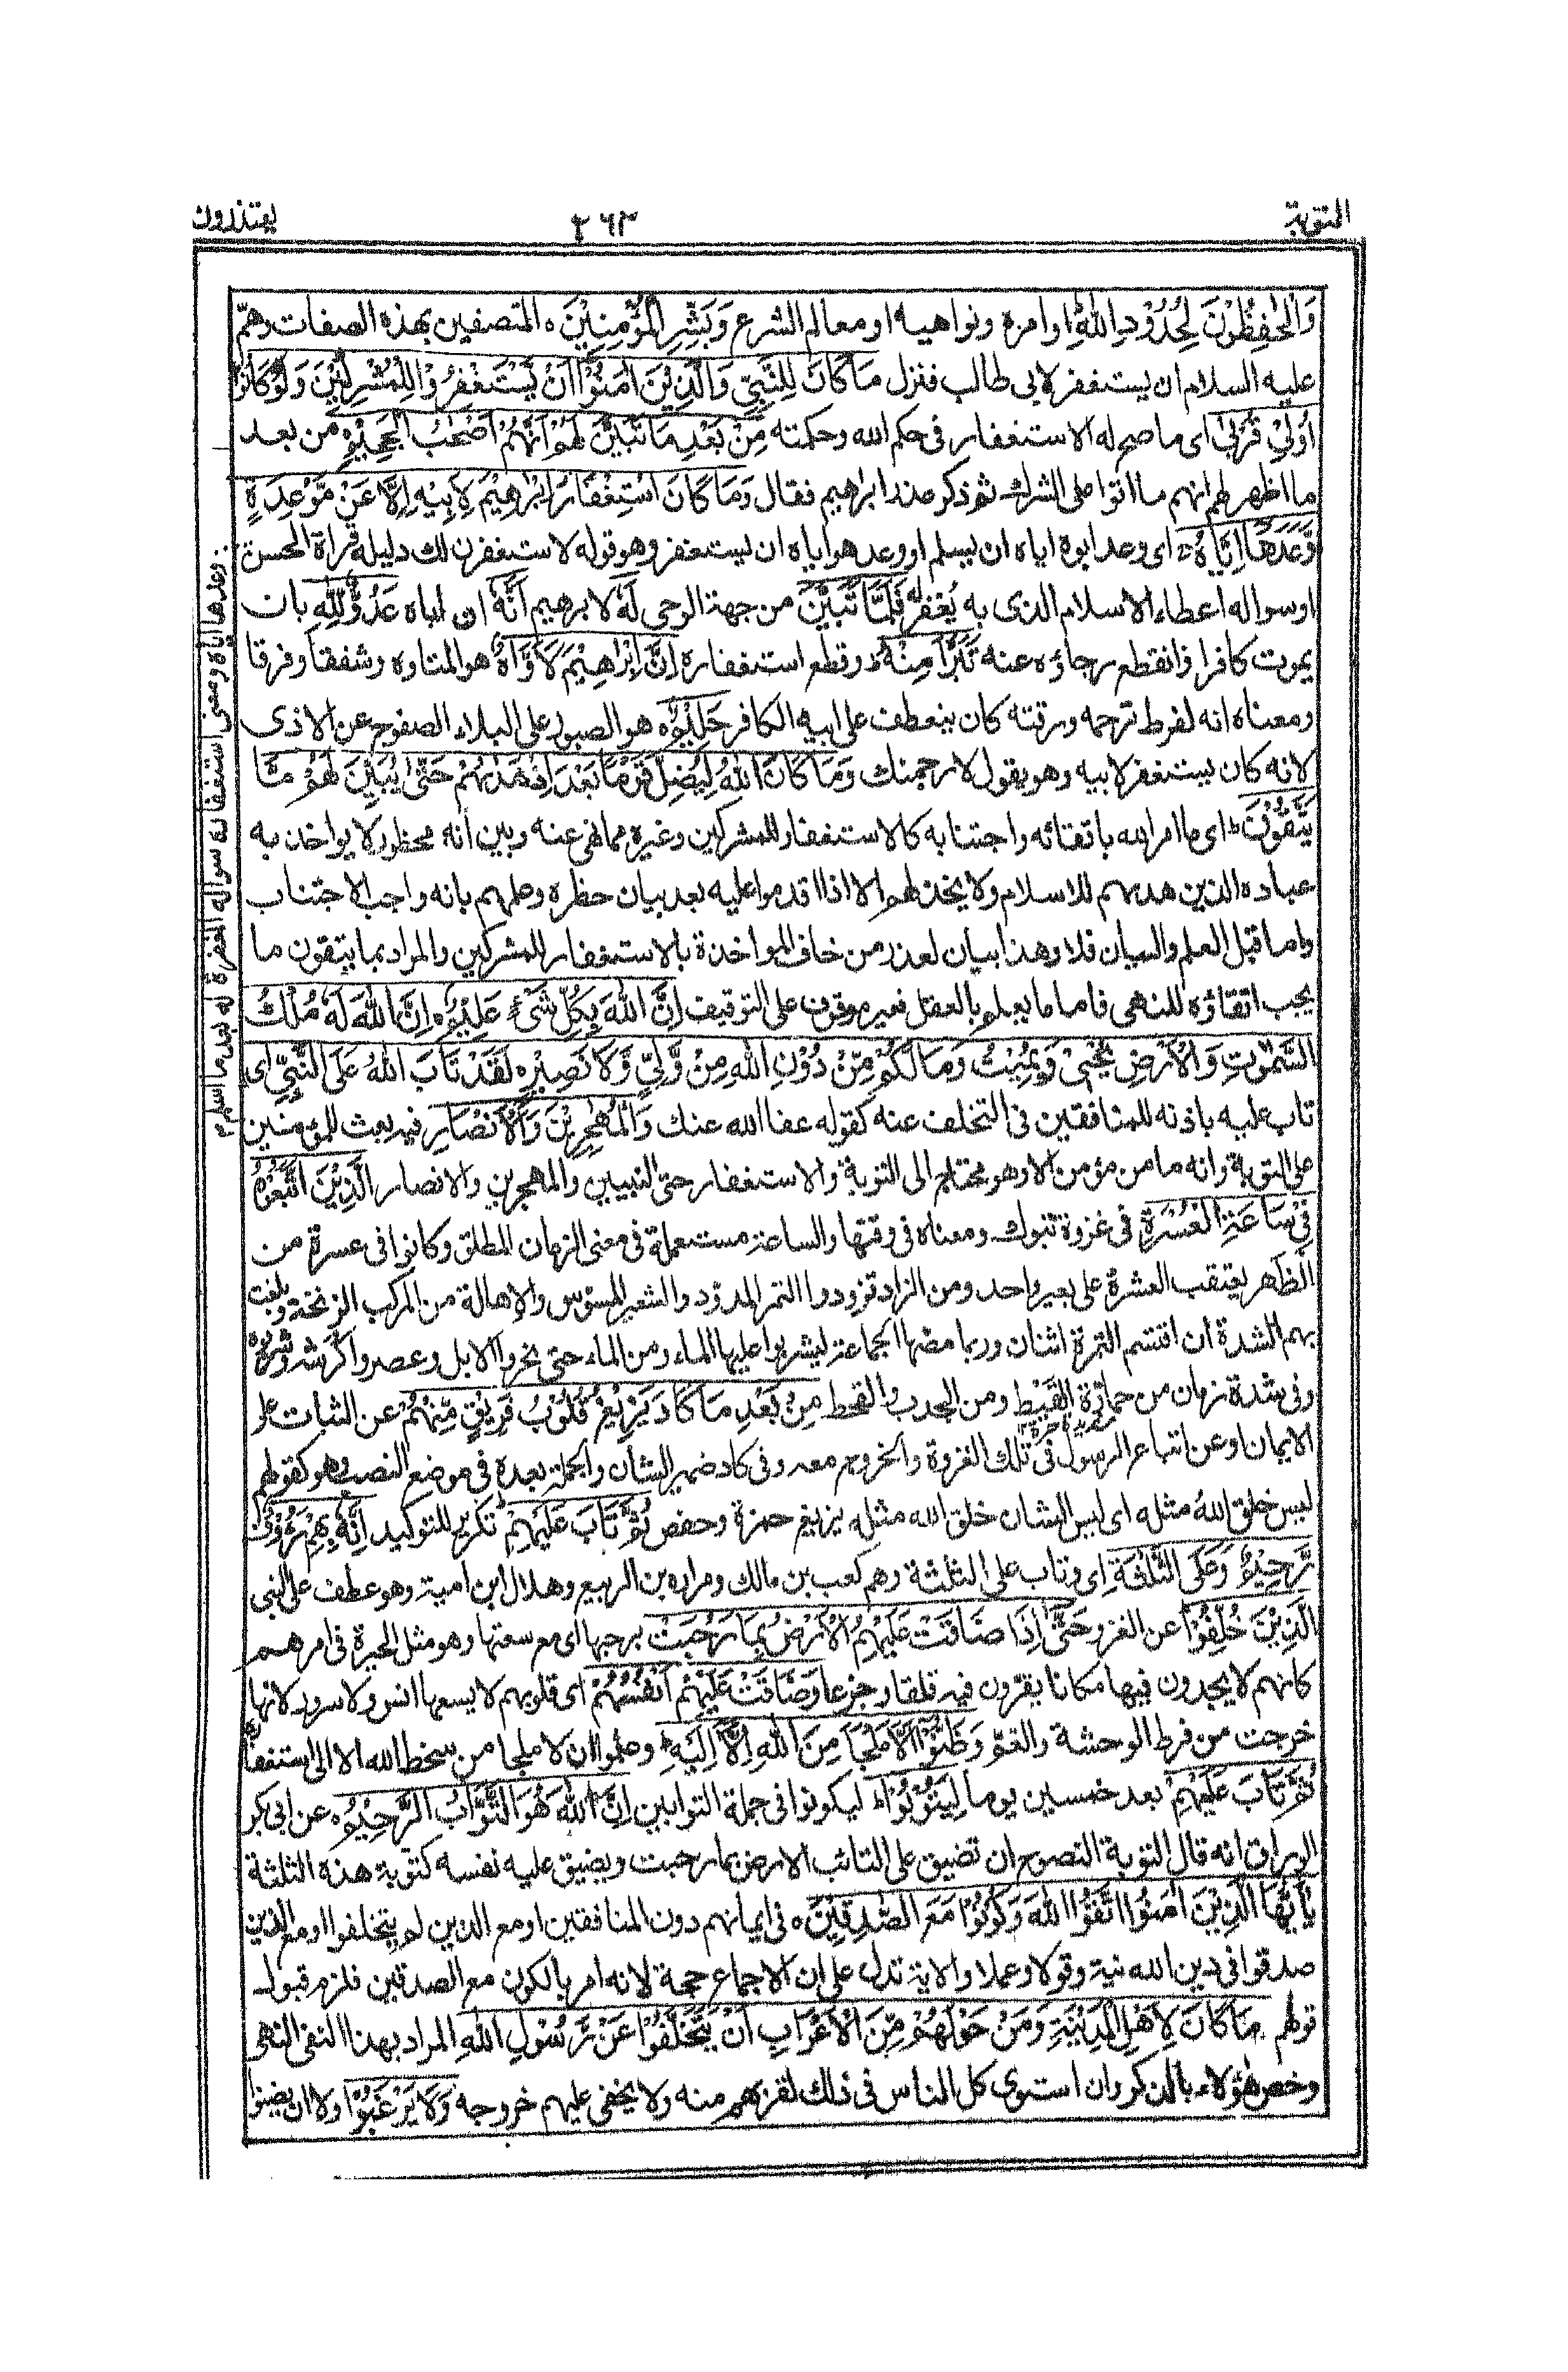 التوبة
٣٦٣
يعتذرون
وَالْحٰفِظُوْنَ لِحُدُوْدِ اللّٰهِ اوامره ونواهيه او معالم الشرع وَبَشِّرِ الْمُؤْمِنِيْنَ ٥ المتصفين بهذه الصفات وهمّ
عليه السلام ان يستغفر لابى طالب فنزل مَا كَانَ لِلنَّبِيِّ وَالَّذِيْنَ اٰمَنُوْٓا اَنْ يَّسْتَغْفِرُوْا لِلْمُشْرِكِيْنَ وَلَوْ كَانُوْٓا
اُولِيْ قُرْبٰى اى ما صح له الاستغفار فى حكم الله وحكمته مِنْۢ بَعْدِ مَا تَبَيَّنَ لَهُمْ اَنَّهُمْ اَصْحٰبُ الْجَحِيْمِ ٥ من بعد
ما اظهر لهم انهم ماتوا على الشرك ثم ذكر عذر ابراهيم فقال وَمَا كَانَ اسْتِغْفَارُ اِبْرٰهِيْمَ لِاَبِيْهِ اِلَّا عَنْ مَّوْعِدَةٍ
وَّعَدَهَآ اِيَّاهُ ج اى وعد ابوه اياه ان يسلم او وعد هو اياه ان يستغفر وهو قوله لاستغفرن لك دليله قراءة الحسن
او سواله اعطاء الاسلام الذى به يُغفر له فَلَمَّا تَبَيَّنَ من جهة الوحى لَهٗٓ لابرهيم اَنَّهٗ ان اباه عَدُوٌّ لِّلّٰهِ بان
يموت كافرا وانقطع رجاؤه عنه تَبَرَّاَ مِنْهُ ط وقطع استغفاره اِنَّ اِبْرٰهِيْمَ لَاَوَّاهٌ هو المتاوه وشفقا وفرقا
ومعناه انه لفرط ترحمه ورقته كان يتعطف على ابيه الكافر حَلِيْمٌ ٥ هو الصبور على البلاء الصفوح عن الاذى
لانه كان يستغفر لابيه وهو يقول لارجمنك وَمَا كَانَ اللّٰهُ لِيُضِلَّ قَوْمًۢا بَعْدَ اِذْ هَدٰىهُمْ حَتّٰى يُبَيِّنَ لَهُمْ مَّا
يَتَّقُوْنَ ط اى ما امر الله باتقائه واجتنابه كالاستغفار للمشركين وغيره مما نهى عنه وبين انه محظور لا يواخذ به
عباده الذين هدىهم للاسلام ولا يخذلهم الا اذا اقدموا عليه بعد بيان حظره وعلمهم بانه واجب الاجتناب
واما قبل العلم والبيان فلا وهذا بيان لعذر من خاف المواخذة بالاستغفار للمشركين والمراد بما يتقون ما
يجب اتقاؤه للنهى فاما ما يعلم بالعقل فغير موقوف على التوقيف اِنَّ اللّٰهَ بِكُلِّ شَيْءٍ عَلِيْمٌ ٥ اِنَّ اللّٰهَ لَهٗ مُلْكُ
السَّمٰوٰتِ وَالْاَرْضِ يُحْيٖ وَيُمِيْتُ وَمَا لَكُمْ مِّنْ دُوْنِ اللّٰهِ مِنْ وَّلِيٍّ وَّلَا نَصِيْرٍ ٥ لَقَدْ تَّابَ اللّٰهُ عَلَى النَّبِيِّ اى
تاب عليه باذنه للمنافقين فى التخلف عنه كقوله عفا الله عنك وَالْمُهٰجِرِيْنَ وَالْاَنْصَارِ فيه بعث للمؤمنين
على التوبة وانه ما من مؤمن الا وهو محتاج الى التوبة والاستغفار حتى النبيين والمهجرين والانصار الَّذِيْنَ اتَّبَعُوْهُ
فِيْ سَاعَةِ الْعُسْرَةِ فى غزوة تبوك ومعناه فى وقتها والساعة مستعملة فى معنى الزمان المطلق وكانوا فى عسرة من
الظهر يعتقب العشرة على بعير واحد ومن الزاد تزودوا التمر المدوّد والشعير المسوّس والاهالة من المركب الزنخة وبلغت
بهم الشدة ان اقتسم التمرة اثنان وربما مصها الجماعة ليشربوا عليها الماء ومن الماء حتى نحروا الابل وعصروا كرشه وشربوه
وفى شدة زمان من حمارّة القيظ ومن الجدب والقحط مِنْۢ بَعْدِ مَا كَادَ يَزِيْغُ قُلُوْبُ فَرِيْقٍ مِّنْهُمْ عن الثبات على
الايمان او عن اتباع الرسول فى تلك الغزوة والخروج معه وفى كاد ضمير الشان والجملة بعده فى موضع النصب وهو كقولهم
ليس خلق اللهُ مثله اى ليس الشان خلق الله مثله يزيغ حمزة وحفص ثُمَّ تَابَ عَلَيْهِمْ تكرير للتوكيد اِنَّهٗ بِهِمْ رَءُوْفٌ
رَّحِيْمٌ وَّعَلَى الثَّلٰثَةِ اى وتاب على الثلثة وهم كعب بن مالك ومراره بن الربيع وهلال ابن امية وهو عطف على النبى
الَّذِيْنَ خُلِّفُوْا عن الغزو حَتّٰٓى اِذَا ضَاقَتْ عَلَيْهِمُ الْاَرْضُ بِمَا رَحُبَتْ برحبها اى مع سعتها وهو مثل الحيرة فى امرهم
كانهم لا يجدون فيها مكانا يقرّون فيه قلقا وجزعا وَضَاقَتْ عَلَيْهِمْ اَنْفُسُهُمْ اى قلوبهم لا يسعها انس ولا سرور لانها
خرجت من فرط الوحشة والغمّ وَظَنُّوْٓا اَلَّا مَلْجَاَ مِنَ اللّٰهِ اِلَّآ اِلَيْهِ ط وعلموا ان لا ملجا من سخط الله الا الى استغفاره
ثُمَّ تَابَ عَلَيْهِمْ بعد خمسين يوما لِيَتُوْبُوْا ط ليكونوا فى جملة التوابين اِنَّ اللّٰهَ هُوَ التَّوَّابُ الرَّحِيْمُ ٥ عن ابى بكر
الوراق انه قال التوبة النصوح ان تضيق على التائب الارض بما رحبت ويضيق عليه نفسه كتوبة هذه الثلثة
يٰٓاَيُّهَا الَّذِيْنَ اٰمَنُوا اتَّقُوا اللّٰهَ وَكُوْنُوْا مَعَ الصّٰدِقِيْنَ ٥ فى ايمانهم دون المنافقين او مع الذين لم يتخلفوا او مع الذين
صدقوا فى دين الله نية وقولا وعملا والاية تدل على ان الاجماع حجة لانه امر بالكون مع الصدقين فلزم قبول
قولهم مَا كَانَ لِاَهْلِ الْمَدِيْنَةِ وَمَنْ حَوْلَهُمْ مِّنَ الْاَعْرَابِ اَنْ يَّتَخَلَّفُوْا عَنْ رَّسُوْلِ اللّٰهِ المراد بهذا النفى النهى
وخص هٰؤلاء بالذكر وان استوى كل الناس فى ذلك لقربهم منه ولا يخفى عليهم خروجه وَلَا يَرْغَبُوْا ولا ان يضنوا
وعدها اياه ومعنى استغفاره سواله المغفرة له بعد ما اسلم